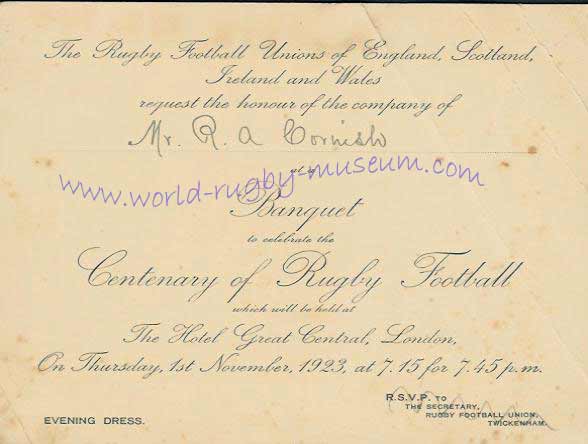 The Rugby Football Unions of England, Scotland,
Ireland and Wales
request the honour of the company of
Mr. R. A Cornish
at a
www.world-rugby-museum.com
Banquet
to celebrate the
Centenary of Rugby Football
which will be held at
The Hotel Great Central, London,
On Thursday, 1st November, 1923, at 7.15 for 7.45 p.m.
R.S.V.P. TO
THE SECRETARY,
RUGBY FOOTBALL UNION,
TWICKENHAM.
EVENING DRESS.